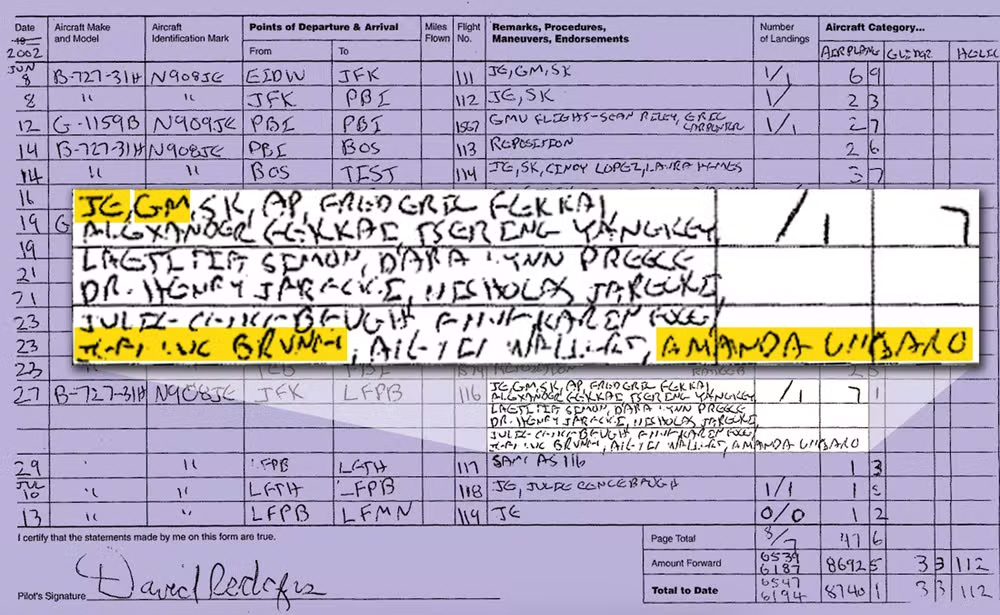 Date Aircraft Make and Model Aircraft Identification Mark Points of Departure & Arrival Miles Flown Flight No. Remarks, Procedures, Maneuvers, Endorsements Number of Landings Aircraft Category...
19
2002 From To AIRPLANE GLIDER HELIC
JUN
8 B-727-31H N908JE EIDW JFK 111 JE, GM, SK 1/1 6 9
8 " " JFK PBI 112 JE, SK 1/ 2 3
12 G-1159B N909JE PBI PBI 1567 GMU FLIGHT-SEAN RILEY, ERIC CARPENTER 1/1 2 7
14 B-727-31H N908JE PBI BOS 113 REPOSITION 2 6
14 " " BOS TEST 114 JE, SK, CINDY LOPEZ, LAURA 3 7
16
19 G
19
21
21
23
23
23
JE, GM, SK, AP, FREDERIC FEKKAI, /1 7
ALEXANDER FEKKAI, TSERING YANGKEY
LAETITIA SIMON, DARA LYNN PREECE
DR. HENRY JARECKI, NICHOLAS JARECKI,
JULIE
BRUNEL, AMANDA
27 B-727-31H N908JE JFK LFPB 116 JE, GM, SK, AP, FREDERIC FEKKAI, /1 7 1
ALEXANDER FEKKAI, TSERING YANGKEY
LAETITIA SIMON, DARA LYNN PREECE
DR. HENRY JARECKI, NICHOLAS JARECKI,
JULIE
BRUNEL, AMANDA
29 " " LFPB LFTH 117 SAME AS 116 1 3
JUL
10 " " LFTH LFPB 118 JE, JULIE 1/1 1
13 " " LFPB LFMN 119 JE 0/0 1 2
I certify that the statements made by me on this form are true. Page Total 8/7 47 6
Amount Forward 6539 6187 8692 5 3 3 112
Pilot's Signature David Rodgers Total to Date 6547 6194 8740 1 3 3 112